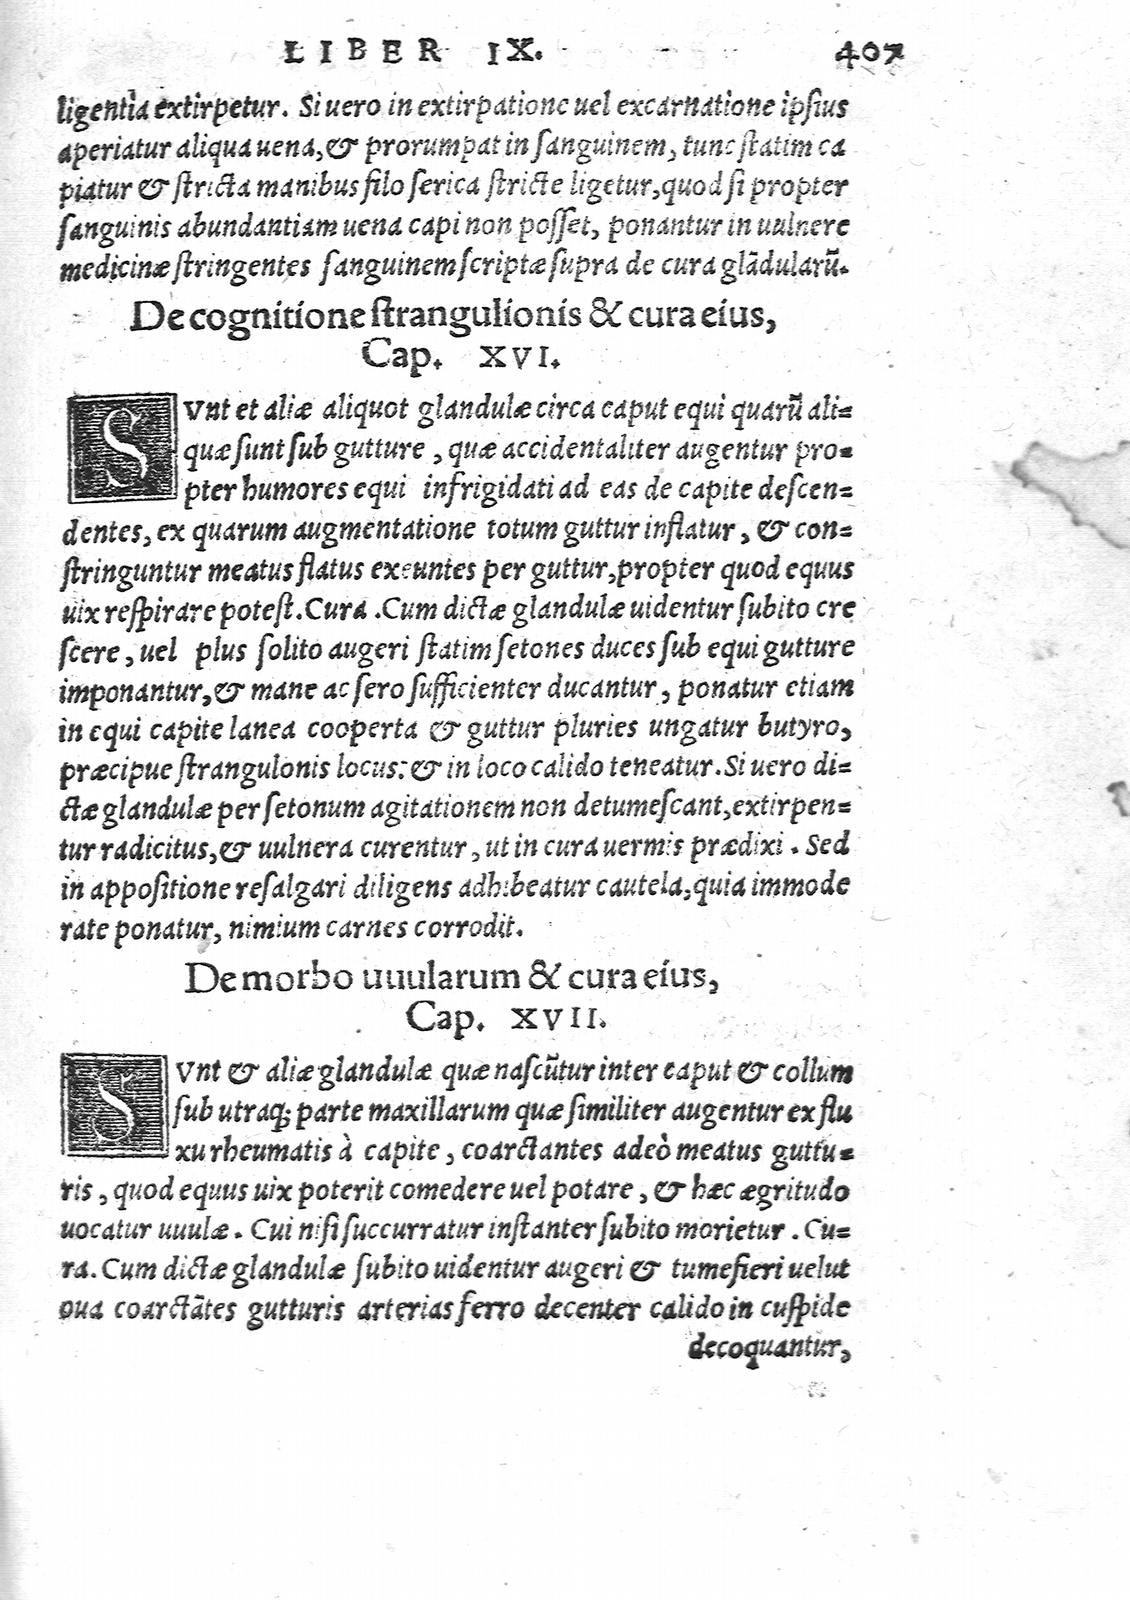 LIBER IX. 407
ligentia extirpetur. Si uero in extirpatione uel excarnatione ipsius
aperiatur aliqua uena, & prorumpat in sanguinem, tunc statim ca
piatur & stricta manibus filo serica stricte ligetur, quod si propter
sanguinis abundantiam uena capi non posset, ponantur in uulnere
medicinæ stringentes sanguinem scriptæ supra de cura glādularū.
De cognitione strangulionis & cura eius,
Cap. XVI.
SVnt et aliæ aliquot glandulæ circa caput equi quarū ali=
quæ sunt sub gutture, quæ accidentaliter augentur pro=
pter humores equi infrigidati ad eas de capite descen=
dentes, ex quarum augmentatione totum guttur inflatur, & con=
stringuntur meatus flatus exeuntes per guttur, propter quod equus
uix respirare potest. Cura. Cum dictæ glandulæ uidentur subito cre
scere, uel plus solito augeri statim setones duces sub equi gutture
imponantur, & mane ac sero sufficienter ducantur, ponatur etiam
in equi capite lanea cooperta & guttur pluries ungatur butyro,
præcipue strangulonis locus: & in loco calido teneatur. Si uero di=
ctæ glandulæ per setonum agitationem non detumescant, extirpen=
tur radicitus, & uulnera curentur, ut in cura uermis prædixi. Sed
in appositione resalgari diligens adhibeatur cautela, quia immode
rate ponatur, nimium carnes corrodit.
De morbo uuularum & cura eius,
Cap. XVII.
SVnt & aliæ glandulæ quæ nascūtur inter caput & collum
sub utraq; parte maxillarum quæ similiter augentur ex flu
xu rheumatis à capite, coarctantes adeò meatus guttu=
ris, quod equus uix poterit comedere uel potare, & hæc ægritudo
uocatur uuulæ. Cui nisi succurratur instanter subito morietur. Cu=
ra. Cum dictæ glandulæ subito uidentur augeri & tumefieri uelut
oua coarctātes gutturis arterias ferro decenter calido in cuspide
decoquantur,